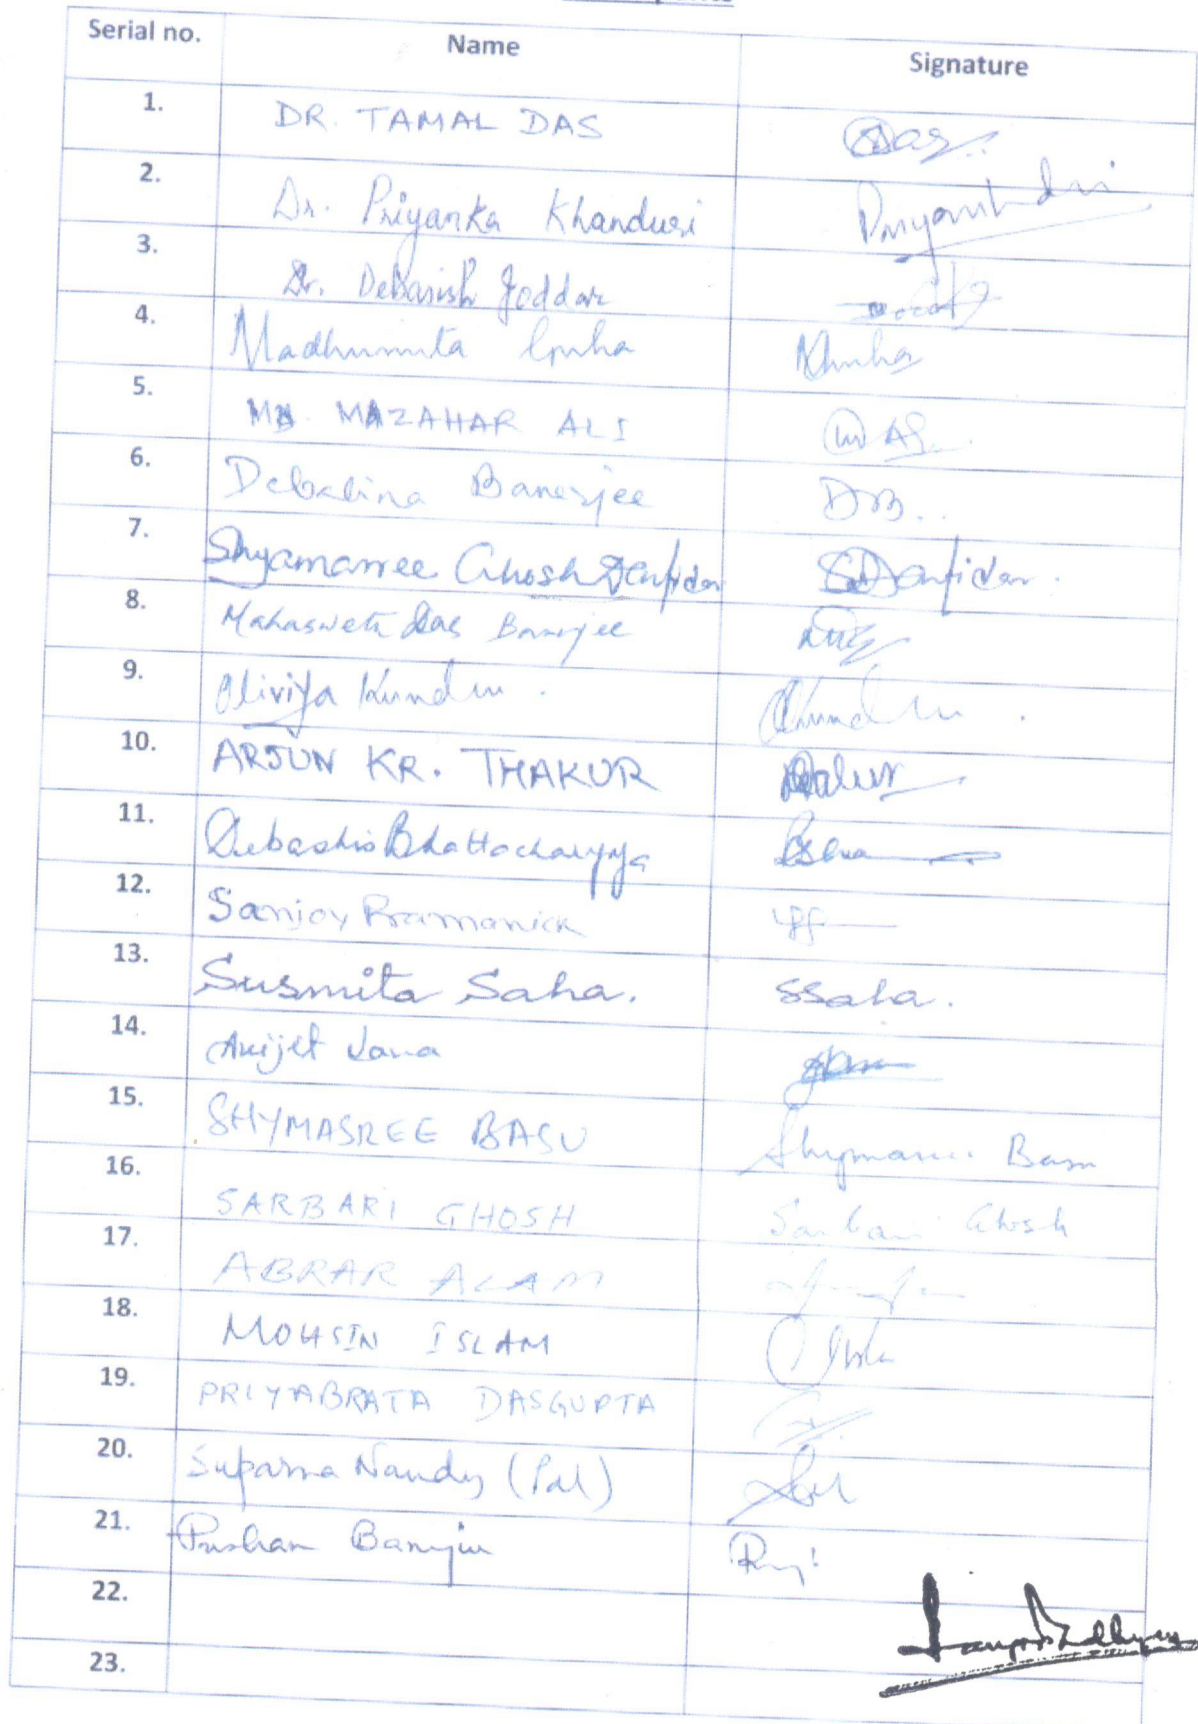 Serial no. Name Signature
1. DR. TAMAL DAS
2. Dr. Priyanka Khanduri
3. Dr. Debanish Joddar
4. Madhumita Guha
5. MD. MAZAHAR ALI
6. Debalina Banerjee DB..
7. Shyamasree Ghosh Dastidar SDastidar.
8. Mahasweta das Banerjee
9. Oliviya Kundu. OKundu.
10. ARJUN KR. THAKUR
11. Debashis Bhattacharyya
12. Sanjoy Pramanick
13. Susmita Saha. SSaha.
14. Avijet Jana
15. SHYMASREE BASU Shymasree Basu
16. SARBARI GHOSH Sarbari Ghosh
17. ABRAR ALAM
18. MOHSIN ISLAM
19. PRIYABRATA DASGUPTA
20. Suparna Nandy (Pal)
21. Pushan Banerjee
22.
23.